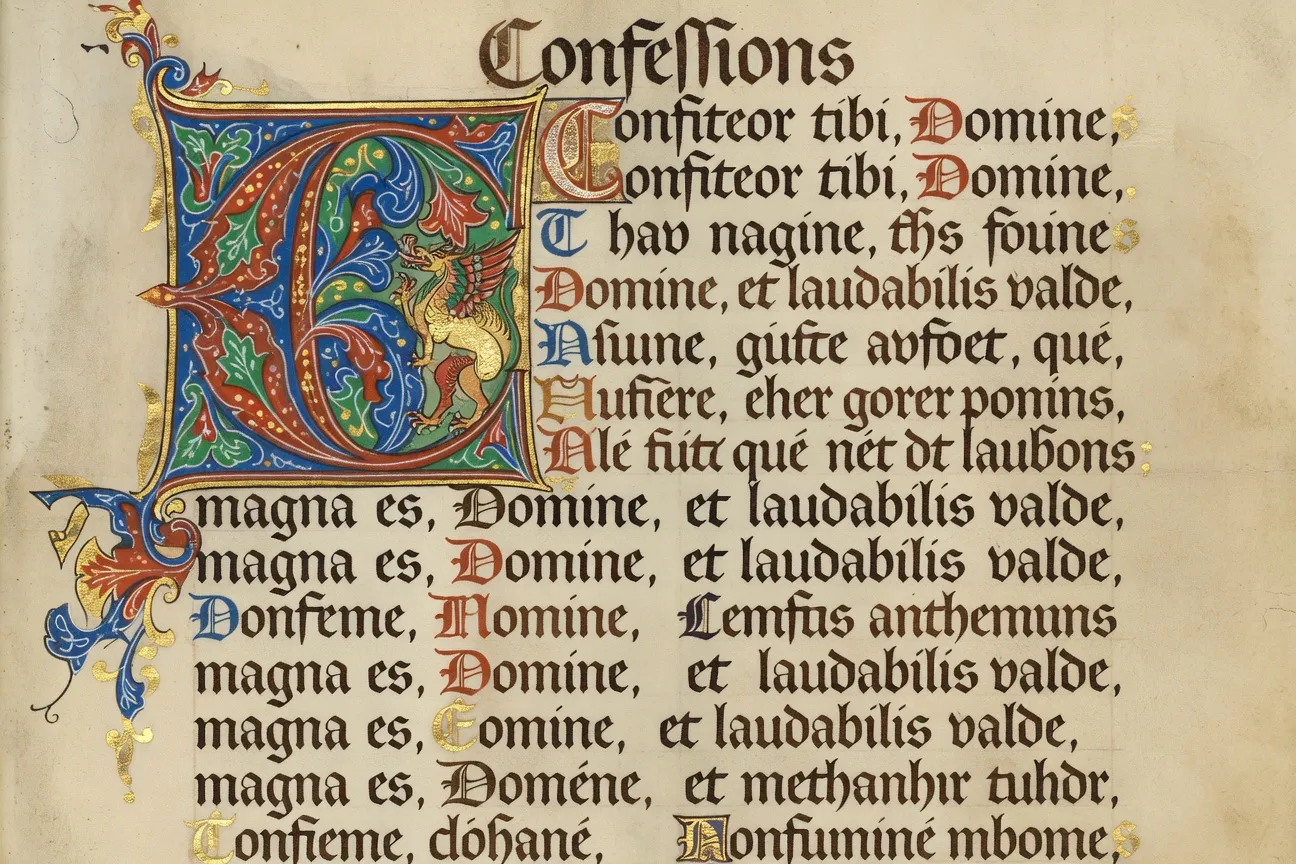 Confessions
Confiteor tibi, Domine,
Confiteor tibi, Domine,
T hav nagine, ths foune
Domine, et laudabilis valde,
gúfte avfoet, qué,
Aufiere, eher gorer ponins,
Alé qué nét dt laubons
magna es, Domine, et laudabilis valde,
magna es, Domine, et laudabilis valde,
Donfeme, Nomine, anthemuns
magna es, Domine, et laudabilis valde,
magna es, Eomine, et laudabilis valde,
magna es, Doméne, et methanhir tuhdr,
Tonfieme, dóhané, mbome,